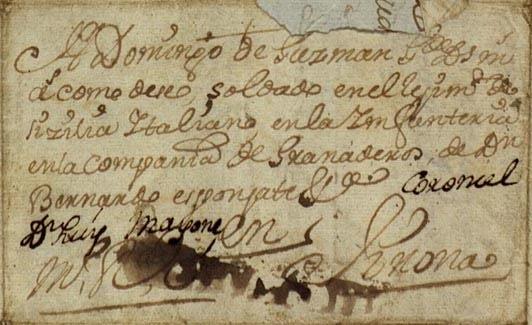 A Domingo de Guzman G.de Dios m
a.s como deseo, soldado en el Regim.to de
sizilia Italiano, en la Infanteria
en la Compania de Granaderos, de Dn
Bernardo esponjate &a Coronel
Dn Luis Magone
en Jirona